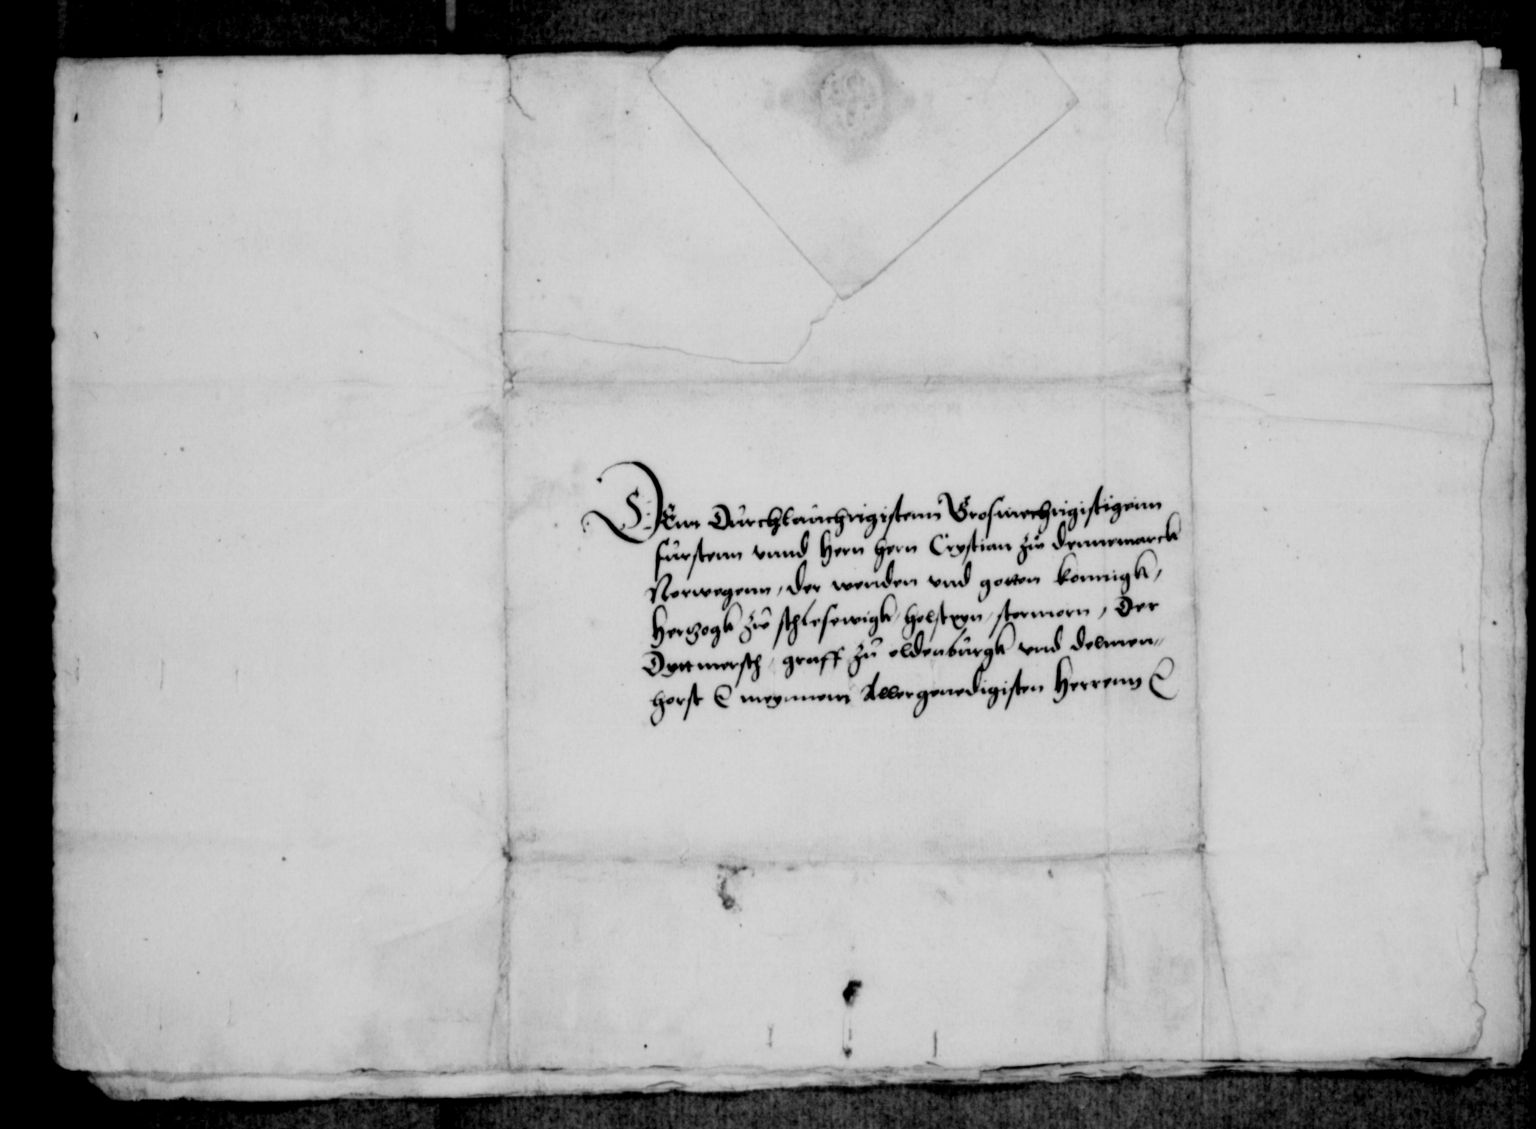 Dem Durchlauchtigistenn Grosmechtigistigenn
fürstenn vnnd Hern hern Crystian zü dennemarck
Norwegenn, der wenden vnd gotten konnigk,
Hertzogk zü schlesewigk, holsteyn, stormorn, Der
Dyttmersch, graff zü oldenbürgk vnd delmen-
horst meynnem Allergenedigisten Herrenn